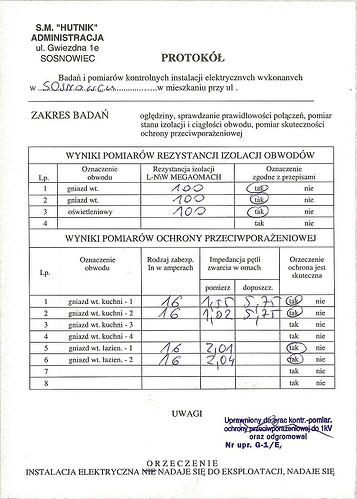 S.M. "HUTNIK"
ADMINISTRACJA
ul. Gwiezdna 1e
SOSNOWIEC
PROTOKÓŁ
Badań i pomiarów kontrolnych instalacji elektrycznych wykonanych
w ..Sosnowcu.................w mieszkaniu przy ul .
ZAKRES BADAŃ
oględziny, sprawdzanie prawidłowości połączeń, pomiar
stanu izolacji i ciągłości obwodu, pomiar skuteczności
ochrony przeciwporażeniowej
WYNIKI POMIARÓW REZYSTANCJI IZOLACJI OBWODÓW
Lp. Oznaczenie obwodu Rezystancja izolacji L-N\W MEGAOMACH Oznaczenie zgodne z przepisami
1 gniazd wt. 100 tak nie
2 gniazd wt. 100 tak nie
3 oświetleniowy 100 tak nie
4 tak nie
WYNIKI POMIARÓW OCHRONY PRZECIWPORAŻENIOWEJ
Lp. Oznaczenie obwodu Rodzaj zabezp. In w amperach Impedancja pętli zwarcia w omach Orzeczenie ochrona jest skuteczna
pomierz dopuszcz.
1 gniazd wt. kuchni - 1 16 1,55 5,75 tak nie
2 gniazd wt. kuchni - 2 16 1,02 5,75 tak nie
3 gniazd wt. kuchni - 3 tak nie
4 gniazd wt. kuchni - 4 tak nie
5 gniazd wt. łazien. - 1 16 2,01 tak nie
6 gniazd wt. łazien. - 2 16 2,04 tak nie
7 tak nie
8 tak nie
UWAGI
Uprawniony do prac kontr.-pomiar.
ochrony przeciwporażeniowej do 1kV
oraz odgromowej
Nr upr. G-1/E,
ORZECZENIE
INSTALACJA ELEKTRYCZNA NIE NADAJE SIĘ DO EKSPLOATACJI, NADAJE SIĘ